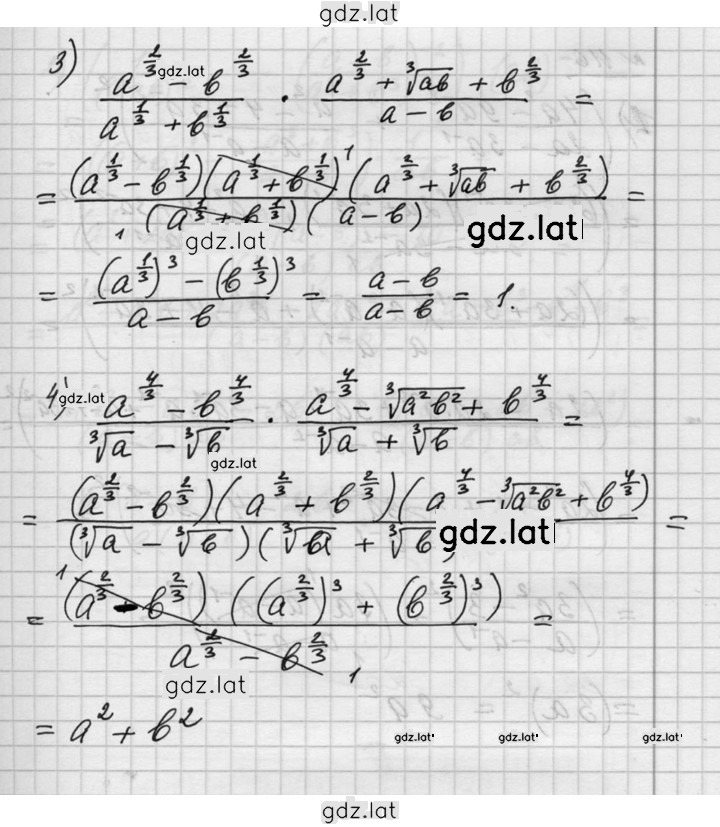 gdz.lat
3) (a^{2/3} gdz.lat − b^{2/3})/(a^{1/3} + b^{1/3}) · (a^{2/3} + ∛(ab) + b^{2/3})/(a − b) =
= ((a^{1/3} − b^{1/3})(a^{1/3} + b^{1/3})^1 (a^{2/3} + ∛(ab) + b^{2/3}))/(1 (a^{1/3} + b^{1/3})(a − b)) =
gdz.lat gdz.lat
= ((a^{1/3})^3 − (b^{1/3})^3)/(a − b) = (a − b)/(a − b) = 1.
4) gdz.lat (a^{4/3} − b^{4/3})/(∛a − ∛b) · (a^{4/3} − ∛(a²b²) + b^{4/3})/(∛a + ∛b) =
gdz.lat
= ((a^{2/3} − b^{2/3})(a^{2/3} + b^{2/3})(a^{4/3} − ∛(a²b²) + b^{4/3}))/((∛a − ∛b)(∛a + ∛b) =
gdz.lat
= (1 (a^{2/3} − b^{2/3}) ((a^{2/3})^3 + (b^{2/3})^3))/(a^{2/3} − b^{2/3} 1) =
gdz.lat
= a² + b²
gdz.lat gdz.lat gdz.lat
gdz.lat